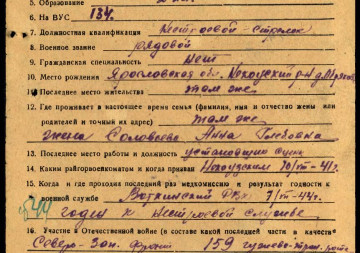 5. Образование
6. На ВУС 134.
7. Должностная квалификация Нестроевой-стрелок
8. Военное звание рядовой
9. Гражданская специальность Нет
10. Место рождения Ярославская обл. Некоузский р-н д.
11. Последнее место жительства там же
12. Где проживает в настоящее время семья (фамилия, имя и отчество жены или
родителей и точный их адрес) там же
жена Соловьева Анна Глебовна
13. Последнее место работы и должность
14. Каким райгорвоенкоматом и когда призван Некоузским 20/VII-41г.
15. Когда и где проходил последний раз медкомиссию и результат годности к
военной службе ФРП 3/VIII-44г.
годен к нестроевой службе
16. Участие в Отечественной войне (в составе какой последней части и в качестве
Северо-Зап. фронт 159 рота